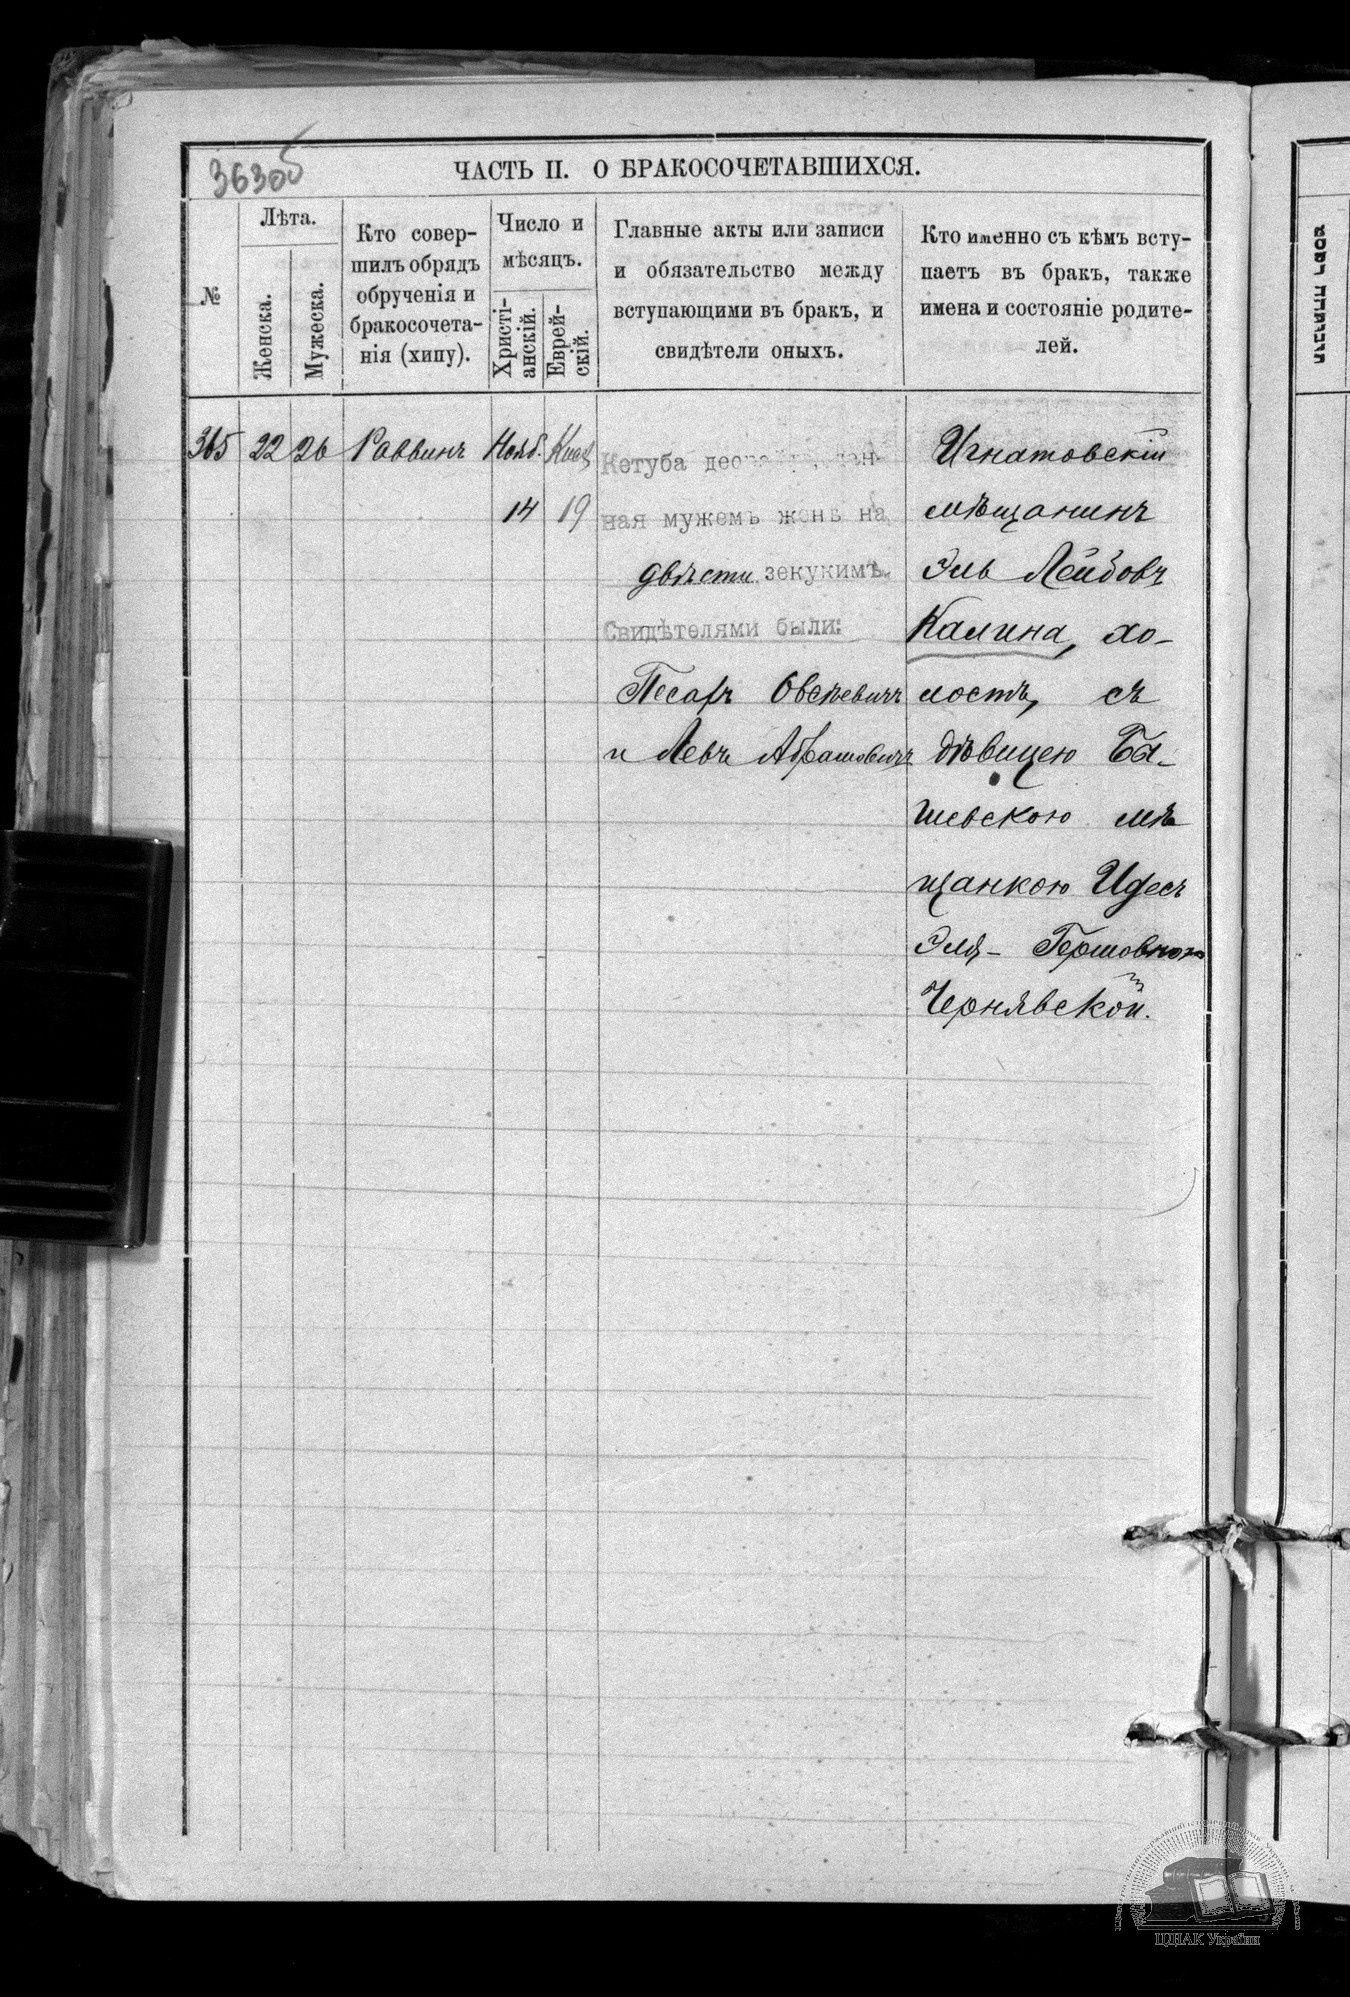 363об
ЧАСТЬ II. О БРАКОСОЧЕТАВШИХСЯ.
№
Лѣта.
Женска.
Мужеска.
Кто совер-
шилъ обрядъ
обрученія и
бракосочета-
нія (хипу).
Число и
мѣсяцъ.
Христі-
анскій.
Еврей-
скій.
Главные акты или записи
и обязательство между
вступающими въ бракъ, и
свидѣтели оныхъ.
Кто именно съ кѣмъ всту-
паетъ въ бракъ, также
имена и состояніе родите-
лей.
365 22 26 Раввинъ Нояб.
14 19
Кетуба
ная мужемъ женѣ на
двѣсти зекукимъ.
Свидѣтелями были:
Песахъ Овсѣевичъ
и Левъ Абрамовичъ
Игнатовскій
мѣщанинъ
Эль Лейбовъ
Калина, хо-
лостъ, съ
дѣвицею Ба-
шевскою мѣ
щанкою Идесъ
Эля- Гершовною
Чернявской.
ЦДІАК України